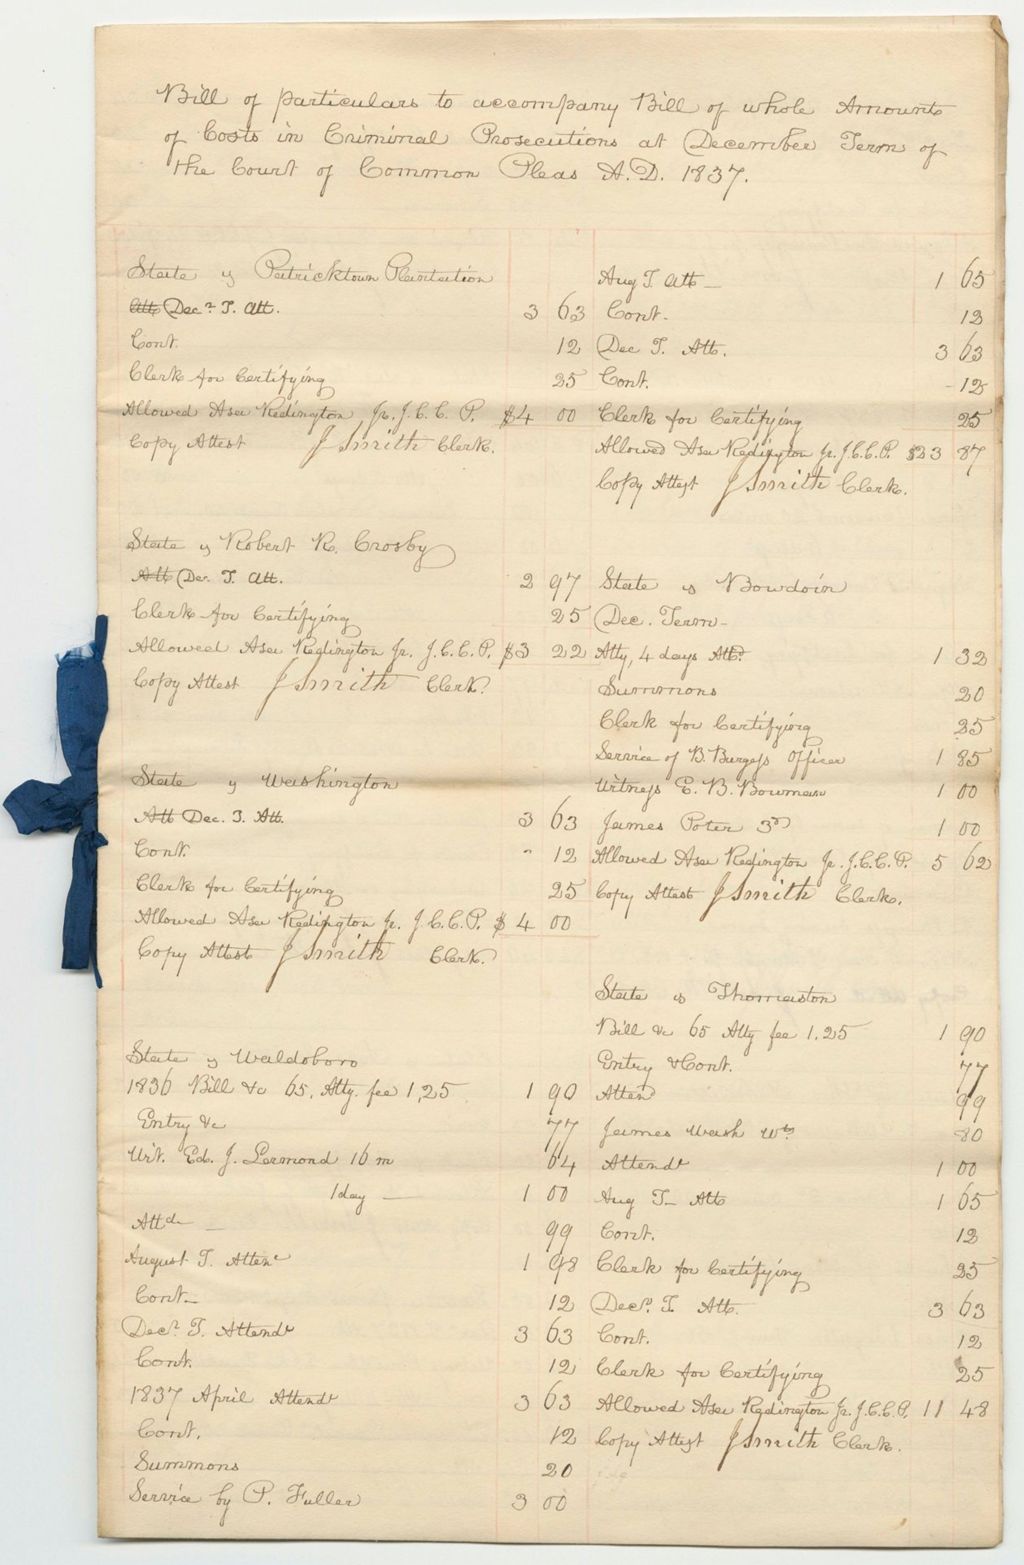 Bill of particulars to accompany Bill of whole Amounts
of Costs in Criminal Prosecutions at December Term of
the Court of Common Pleas A.D. 1837.
State vs Patricktown Plantation
Att Decr T. Att. 3 63
Cont. 12
Clerk for Certifying 25
Allowed Asa Redington Jr. J.C.C.P. $4 00
Copy Attest J Smith Clerk.
State vs Robert R. Crosby
Att Dec. T. Att. 2 97
Clerk for Certifying 25
Allowed Asa Redington Jr. J.C.C.P. $3 22
Copy Attest J Smith Clerk.
State vs Washington
Att Dec. T. Att. 3 63
Cont. 12
Clerk for Certifying 25
Allowed Asa Redington Jr. J.C.C.P. $4 00
Copy Attest J Smith Clerk.
State vs Waldoboro
1836 Bill &c 65. Atty. fee 1,25 1 90
Entry &c 77
Wit. Ed. J. Lermond 16 m 64
1 day — 1 00
Attd — 99
August T. Atten 1 98
Cont — 12
Decr T. Attendt 3 63
Cont. 12
1837 April Attendt 3 63
Cont. 12
Summons 20
Service by P. Fuller 3 00
Aug T Att — 1 65
Cont. 12
Dec T. Att. 3 63
Cont. 12
Clerk for Certifying 25
Allowed Asa Redington Jr. J.C.C.P. $23 87
Copy Attest J Smith Clerk.
State vs Bowdoin
Dec. Term —
Atty, 4 days Att. 1 32
Summons 20
Clerk for Certifying 25
Service of B Burgess Officer 1 85
Witness E. B. Bowman 1 00
James Poter 3d 1 00
Allowed Asa Redington Jr. J.C.C.P. 5 62
Copy Attest J Smith Clerk.
State vs Thomaston
Bill &c 65 Atty fee 1.25 1 90
Entry & Cont. 77
Atten 99
James Wash Wts 80
Attendt 1 00
Aug T — Att 1 65
Cont. 12
Clerk for Certifying 25
Decr. T. Att. 3 63
Cont. 12
Clerk for Certifying 25
Allowed Asa Redington Jr. J.C.C.P. 11 48
Copy Attest J Smith Clerk.